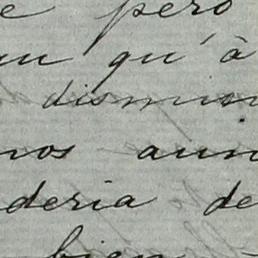 e pero
qu'à
dismiou
nos aun
deria de
bien